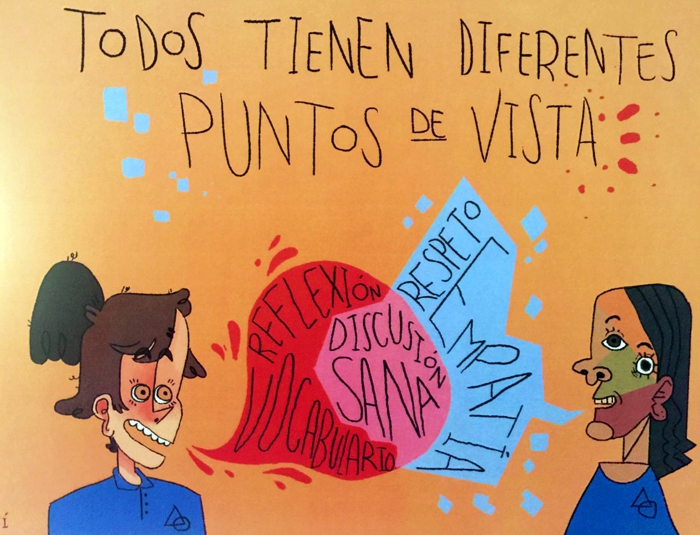 TODOS TIENEN DIFERENTES
PUNTOS DE VISTA
REFLEXIÓN
VOCABULARIO
DISCUSIÓN
SANA
RESPETO
EMPATÍA
Í